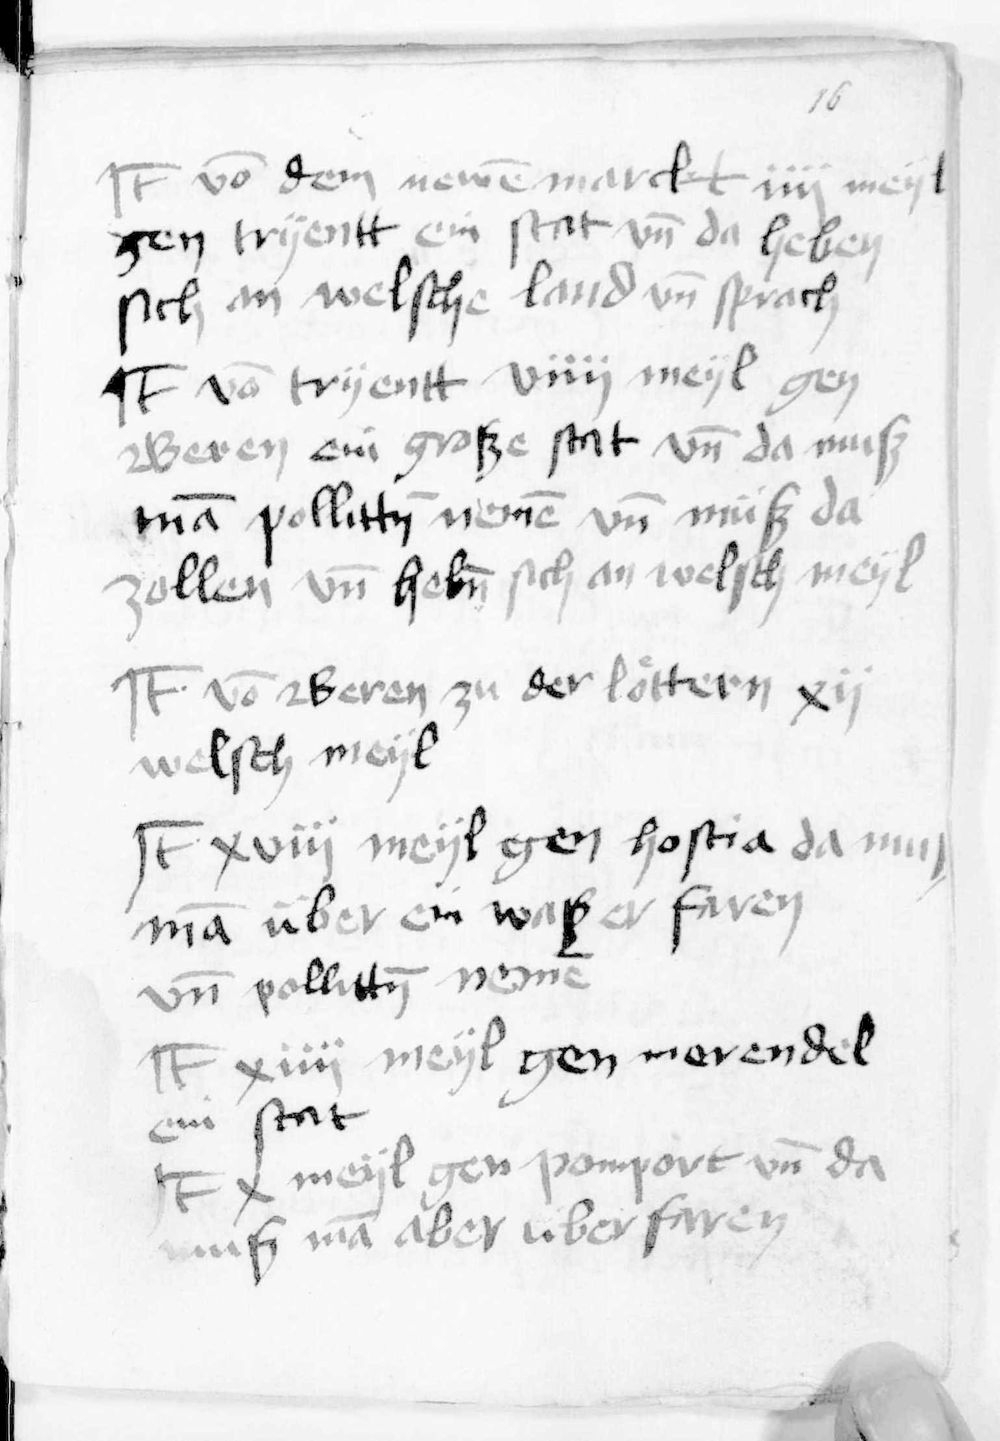 16
It vō dem newē marckt iiij meyl
gen tryentt ein stat vn̄ da heben
sich an welsche land vn̄ sprach
It vō tryentt viiij meyl gen
Beren ein große stat vn̄ da muß
mā pollittȳ nemē vn̄ muß da
zollen vn̄ hebn̄ sich an welsch meyl
It vō Beren zu der löttern xij
welsch meyl
It xviij meyl gen hostia da muß
mā über ein waßer faren
vn̄ pollittȳ nemē
It xiiij meyl gen merendel
ein stat
It x meyl gen pomport vn̄ da
muß mā aber uber faren